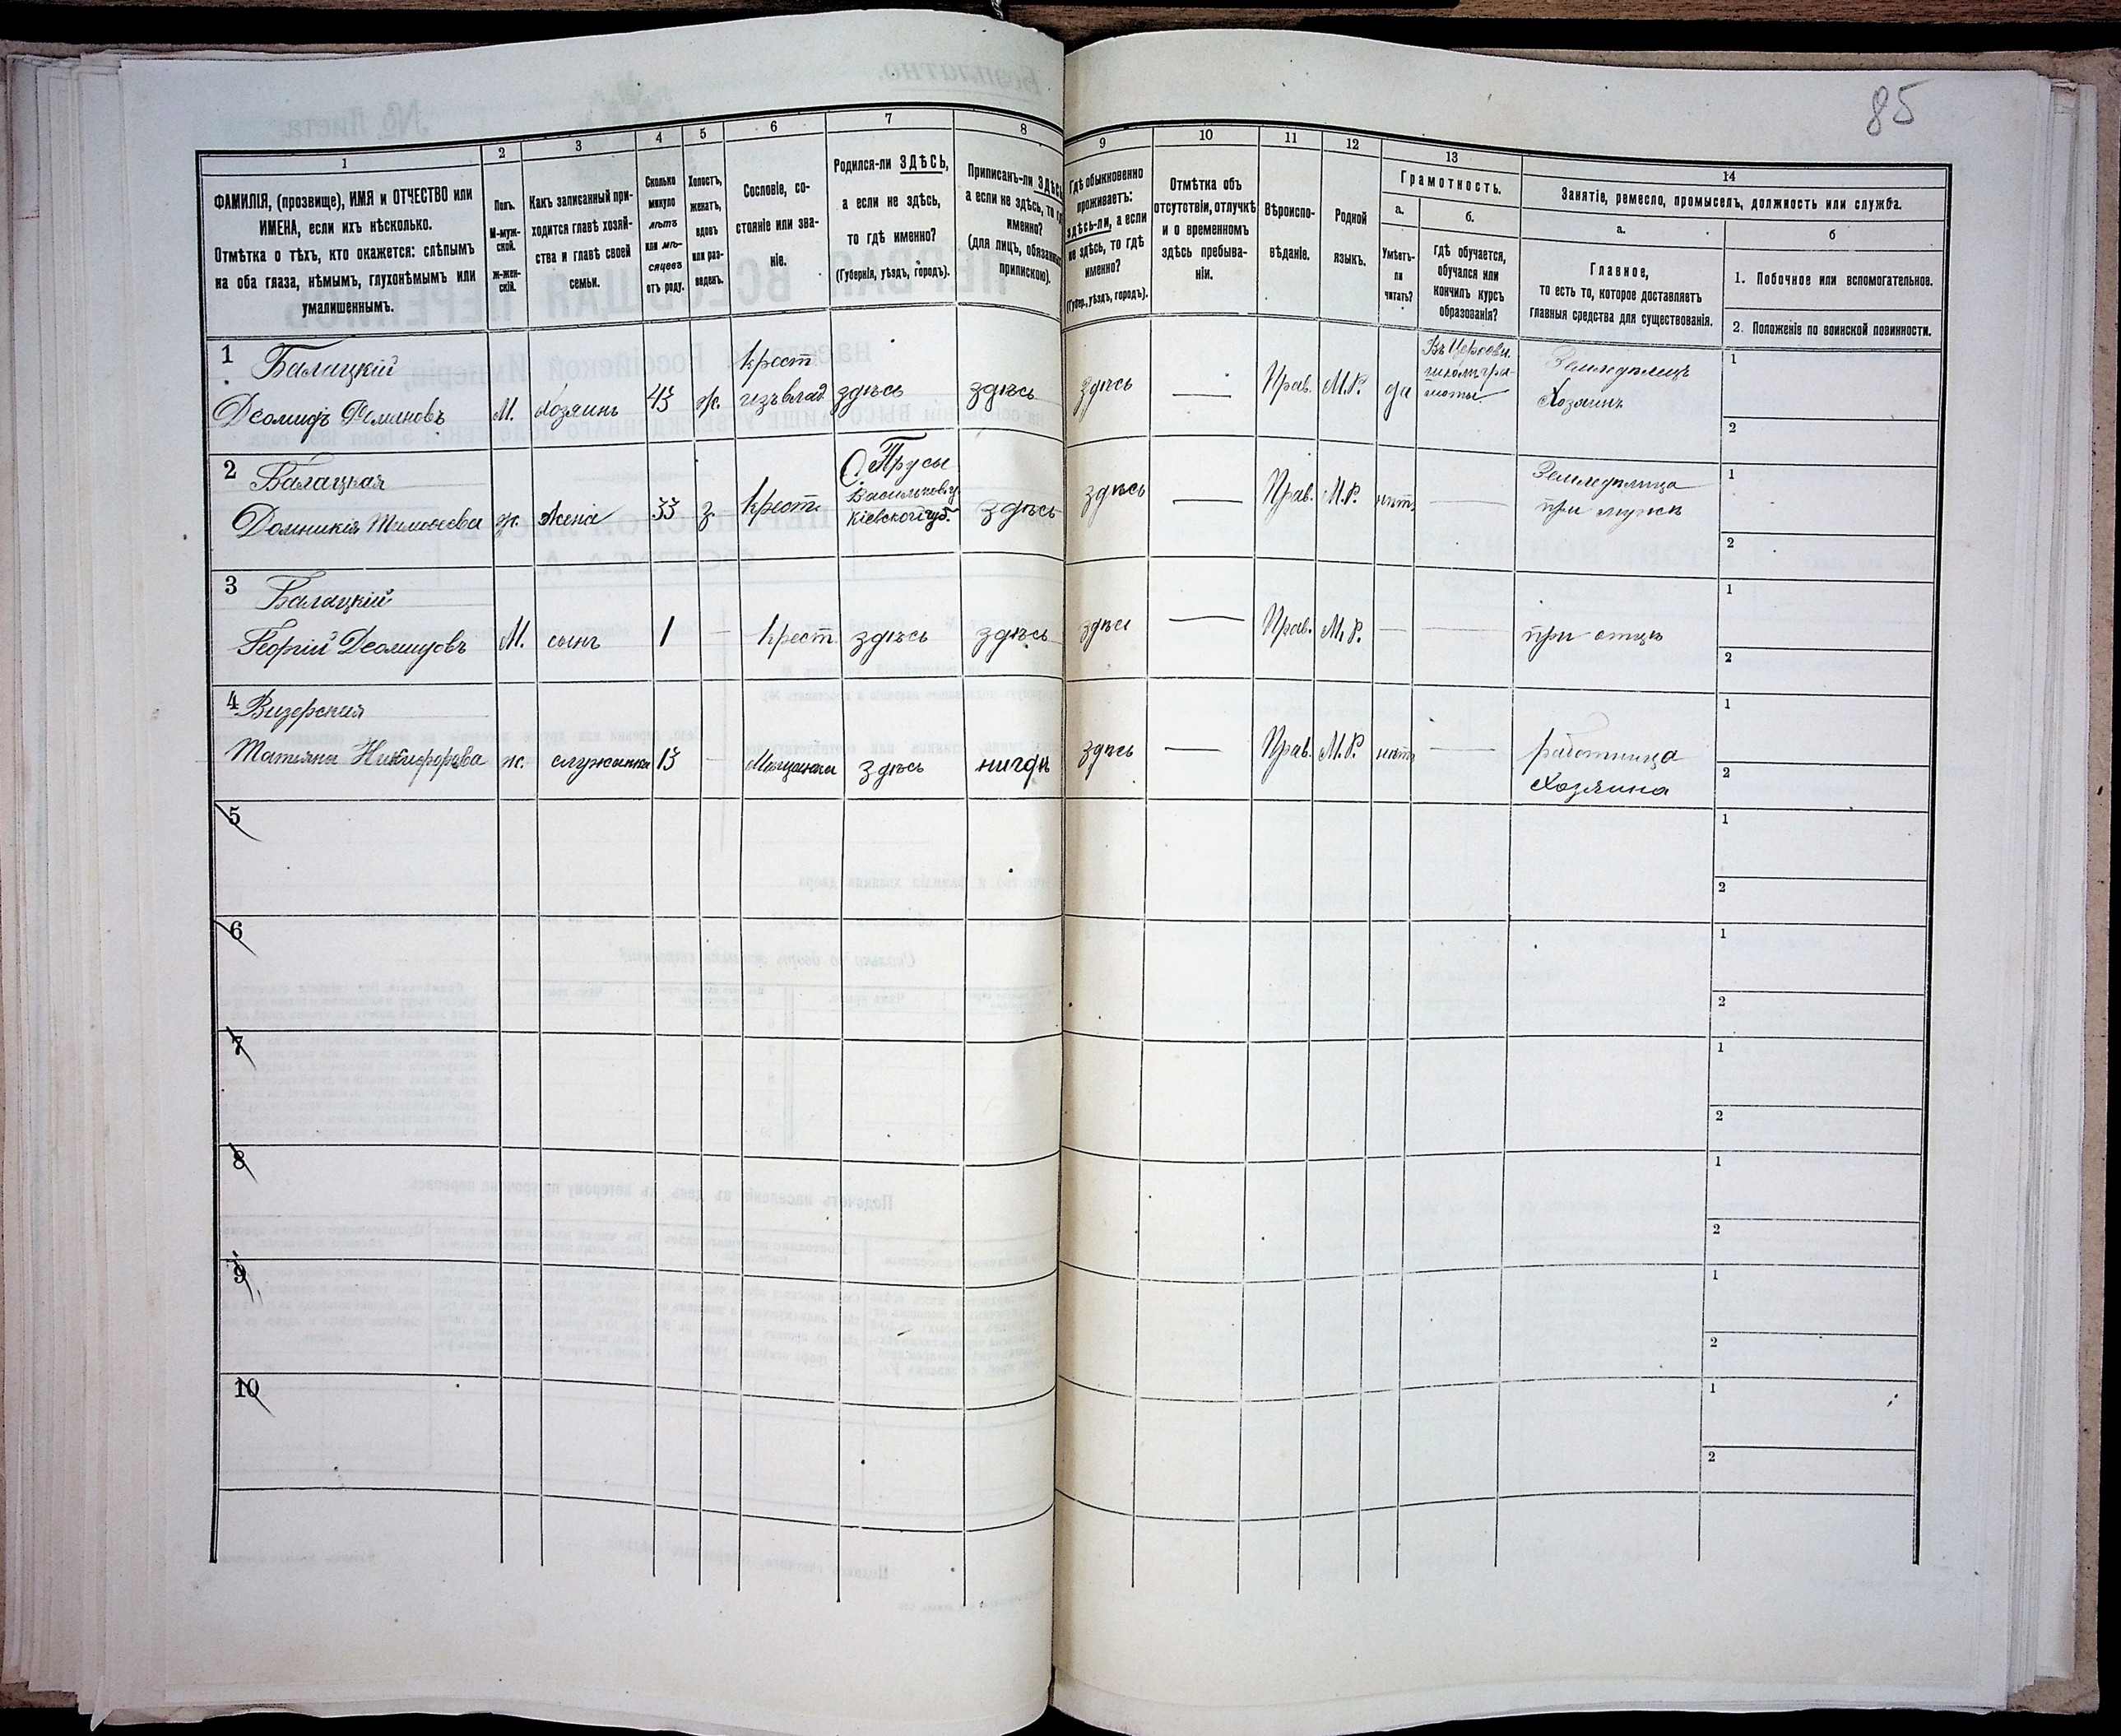 85
1
2
3
4
5
6
7
8
9
10
11
12
13
14
ФАМИЛІЯ, (прозвище), ИМЯ и ОТЧЕСТВО или
ИМЕНА, если ихъ нѣсколько.
Отмѣтка о тѣхъ, кто окажется: слѣпымъ
на оба глаза, нѣмымъ, глухонѣмымъ или
умалишеннымъ.
Полъ.
М-муж-
ской.
Ж-жен-
скій.
Какъ записанный при-
ходится главѣ хозяй-
ства и главѣ своей
семьи.
Сколько
минуло
лѣтъ
или мѣ-
сяцевъ
отъ роду.
Холостъ,
женатъ,
вдовъ
или раз-
веденъ.
Сословіе, со-
стояніе или зва-
ніе.
Родился-ли ЗДѢСЬ,
а если не здѣсь,
то гдѣ именно?
(Губернія, уѣздъ, городъ).
Приписанъ-ли ЗДѢСЬ
а если не здѣсь, то гд
именно?
(для лицъ, обязанны
припискою).
Гдѣ обыкновенно
проживаетъ:
здѣсь-ли, а если
не здѣсь, то гдѣ
именно?
(Губер., уѣздъ, городъ).
Отмѣтка объ
отсутствіи, отлучкѣ
и о временномъ
здѣсь пребыва-
ніи.
Вѣроиспо-
вѣданіе.
Родной
языкъ.
Грамотность.
а.
Умѣетъ-
ли
читать?
б.
Гдѣ обучается,
обучался или
кончилъ курсъ
образованія?
Занятіе, ремесло, промыселъ, должность или служба.
а.
Главное,
то есть то, которое доставляетъ
главныя средства для существованія.
б
1. Побочное или вспомогательное.
2. Положеніе по воинской повинности.
1 Балацкій
Деомидъ М. хозяинъ 43 ж.
крест
изъ влад здѣсь здѣсь здѣсь — Прав. М.Р. да
Въ Церковн.
школѣ гра-
моты
Земледѣлецъ
Хозяинъ
1
2
2 Балацкая
Домникія Тимофеева ж. жена 33 з крест
С. Трусы
Васильков у
Кіевской губ. здѣсь здѣсь — Прав. М.Р. нѣтъ —
Земледѣлица
при мужѣ
1
2
3 Балацкій
Георгій Деомидовъ М. сынъ 1 — крест здѣсь здѣсь здѣсь — Прав. М.Р. — — при отцѣ
1
2
4 Визерская
Татьяна Никифорова ж. служанка 13 — Мѣщанка здѣсь нигдѣ здѣсь — Прав. М.Р. нѣтъ —
работница
Хозяина
1
2
5
1
2
6
1
2
7
1
2
8
1
2
9
1
2
10
1
2